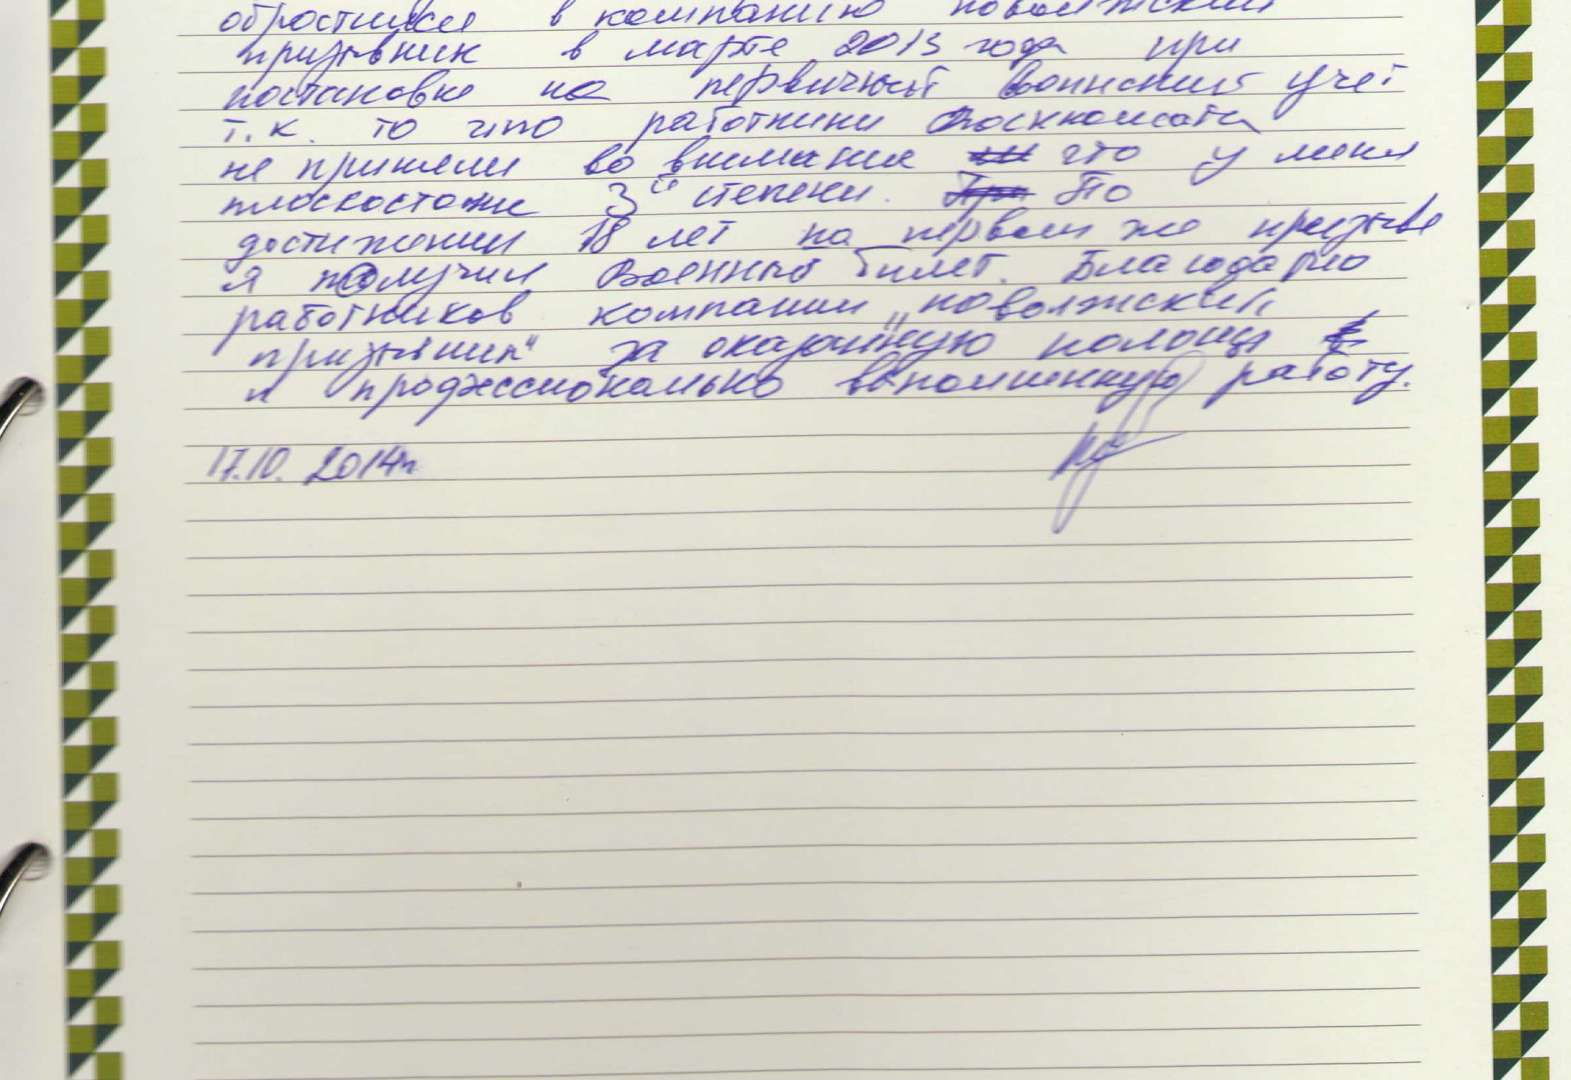 обратился в компанию поволжский
призывник в марте 2013 года при
постановке на первичный воинский учёт
т.к. то что работники военкомата
не приняли во внимание что у меня
плоскостопие 3й степени. По
достижении 18 лет на первом же призыве
я получил военный билет. Благодарю
работников компании „поволжский
призывник" за оказанную помощь
и профессионально выполненную работу.
17.10. 2014г.